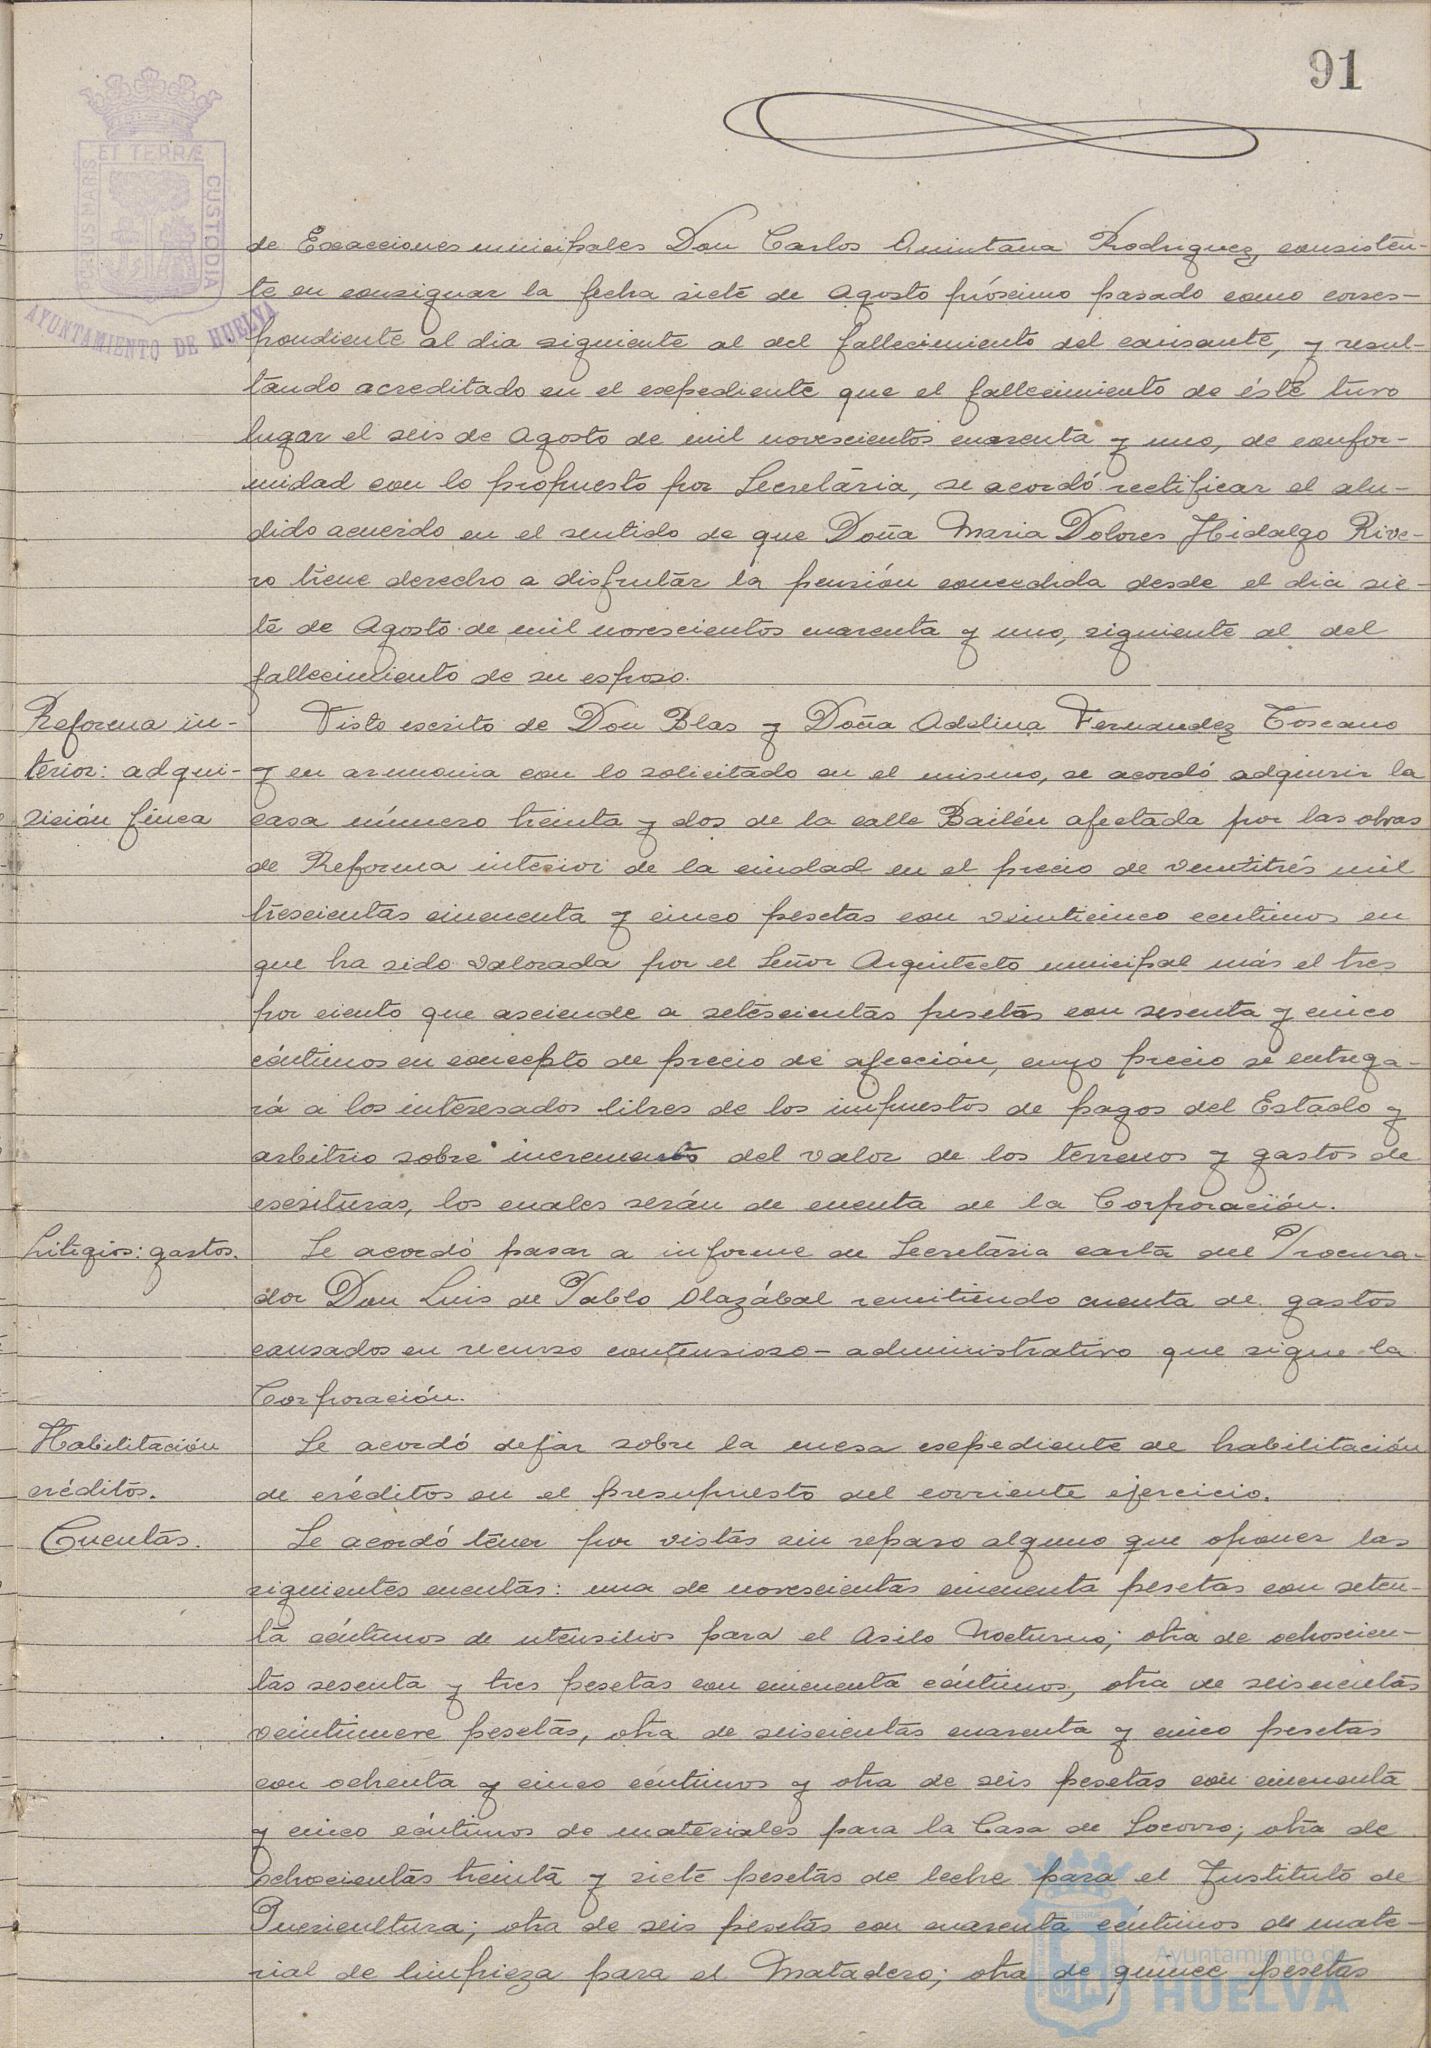 91
PORTUS MARIS ET TERRÆ CUSTODIA
AYUNTAMIENTO DE HUELVA
de Exacciones municipales Don Carlos Quintana Rodriguez, consisten-
te en consignar la fecha siete de Agosto próximo pasado como corres-
pondiente al dia siguiente al del fallecimiento del causante, y resul-
tando acreditado en el expediente que el fallecimiento de éste tuvo
lugar el seis de Agosto de mil novescientos cuarenta y uno, de confor-
midad con lo propuesto por Secretaria, se acordó rectificar el alu-
dido acuerdo en el sentido de que Doña Maria Dolores Hidalgo Rive-
ro tiene derecho a disfrutar la pensión concedida desde el dia sie-
te de Agosto de mil novescientos cuarenta y uno, siguiente al del
fallecimiento de su esposo.
Reforma in-
terior: adqui-
sición finca
Visto escrito de Don Blas y Doña Adelina Fernandez Toscano
y en armonia con lo solicitado en el mismo, se acordó adquirir la
casa número treinta y dos de la calle Bailén afectada por las obras
de Reforma interior de la ciudad en el precio de veintitrés mil
trescientas cincuenta y cinco pesetas con veinticinco centimos en
que ha sido valorada por el Señor Arquitecto municipal más el tres
por ciento que asciende a setescientas pesetas con sesenta y cinco
céntimos en concepto de precio de afección, cuyo precio se entrega-
rá a los interesados libres de los impuestos de pagos del Estado y
arbitrio sobre incremento del valor de los terrenos y gastos de
escrituras, los cuales serán de cuenta de la Corporación.
Litigios: gastos.
Se acordó pasar a informe de Secretaria carta del Procura-
dor Don Luis de Pablo Olazábal remitiendo cuenta de gastos
causados en recurso contensioso-administrativo que sigue la
Corporación.
Habilitación
créditos.
Se acordó dejar sobre la mesa expediente de habilitación
de créditos en el presupuesto del corriente ejercicio.
Cuentas.
Se acordó tener por vistas sin reparo alguno que oponer las
siguientes cuentas: una de novescientas cincuenta pesetas con seten-
ta céntimos de utensilios para el Asilo Nocturno; otra de ochoscien-
tas sesenta y tres pesetas con cincuenta céntimos, otra de seiscientas
veintinueve pesetas, otra de seiscientas cuarenta y cinco pesetas
con ochenta y cinco céntimos y otra de seis pesetas con cincuenta
y cinco céntimos de materiales para la Casa de Socorro; otra de
ochoscientas treinta y siete pesetas de leche para el Instituto de
Puericultura; otra de seis pesetas con cuarenta céntimos de mate-
rial de limpieza para el Matadero; otra de quince pesetas
Ayuntamiento de
HUELVA